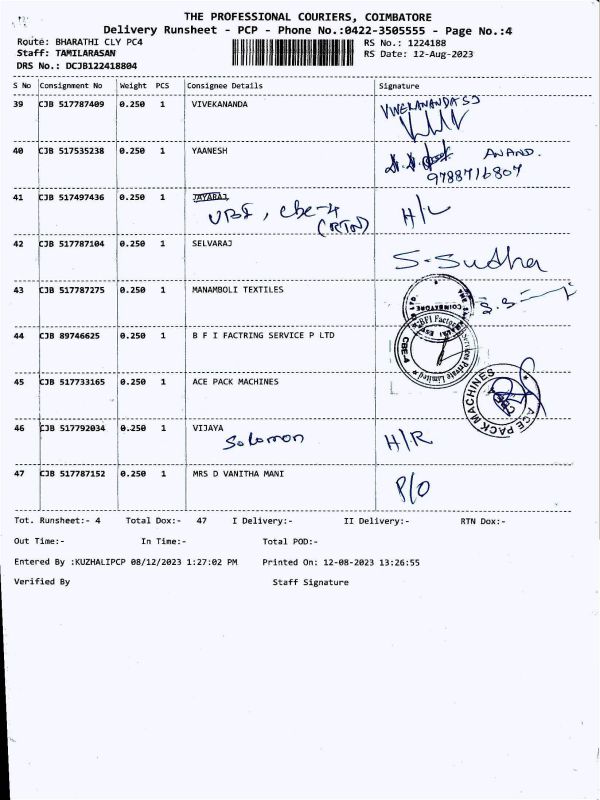 THE PROFESSIONAL COURIERS, COIMBATORE
Delivery Runsheet - PCP - Phone No.:0422-3505555 - Page No.:4
Route: BHARATHI CLY PC4 RS No.: 1224188
Staff: TAMILARASAN RS Date: 12-Aug-2023
DRS No.: DCJB122418804
S No Consignment No Weight PCS Consignee Details Signature
39 CJB 517787409 0.250 1 VIVEKANANDA VIVEKANANDA
40 CJB 517535238 0.250 1 YAANESH ANAND.
9788716807
41 CJB 517497436 0.250 1 JAYARAJ H/L
cbe-4
(RTN)
42 CJB 517787104 0.250 1 SELVARAJ S-Sudha
43 CJB 517787275 0.250 1 MANAMBOLI TEXTILES
COIMBATORE
44 CJB 89746625 0.250 1 B F I FACTRING SERVICE P LTD
BFI Factoring Services Private Limited
CBE-4
45 CJB 517733165 0.250 1 ACE PACK MACHINES
ACE PACK MACHINES
46 CJB 517792034 0.250 1 VIJAYA H/R
Solomon
47 CJB 517787152 0.250 1 MRS D VANITHA MANI P/O
Tot. Runsheet:- 4 Total Dox:- 47 I Delivery:- II Delivery:- RTN Dox:-
Out Time:- In Time:- Total POD:-
Entered By :KUZHALIPCP 08/12/2023 1:27:02 PM Printed On: 12-08-2023 13:26:55
Verified By Staff Signature